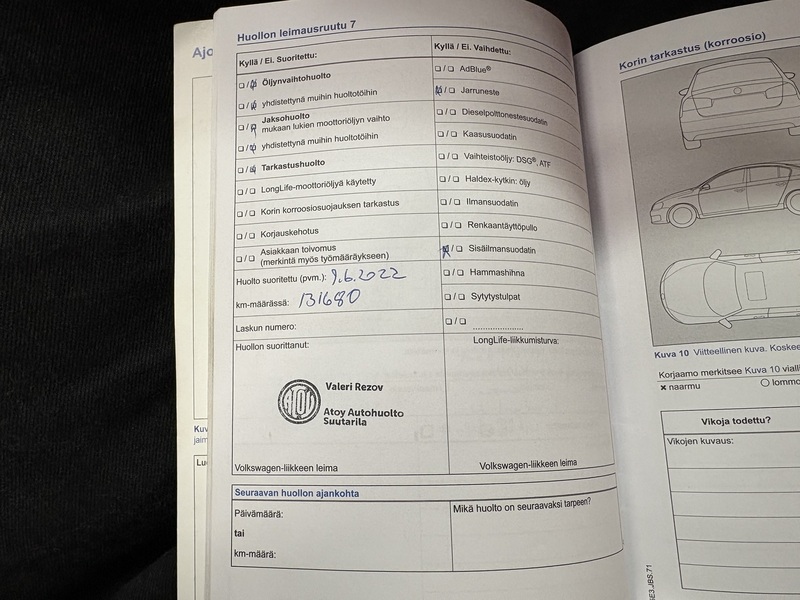 Ajo
Huollon leimausruutu 7
Kyllä / Ei. Suoritettu:
❏/❏ Öljynvaihtohuolto
❏/❏ yhdistettynä muihin huoltotöihin
❏/❏ Jaksohuolto
mukaan lukien moottoriöljyn vaihto
❏/❏ yhdistettynä muihin huoltotöihin
❏/❏ Tarkastushuolto
❏/❏ LongLife-moottoriöljyä käytetty
❏/❏ Korin korroosiosuojauksen tarkastus
❏/❏ Korjauskehotus
❏/❏ Asiakkaan toivomus
(merkintä myös työmääräykseen)
Huolto suoritettu (pvm.): 9.6.2022
km-määrässä: 131680
Laskun numero:
Huollon suorittanut:
Valeri Rezov
Atoy Autohuolto
Suutarila
Volkswagen-liikkeen leima
Kyllä / Ei. Vaihdettu:
❏/❏ AdBlue®
❏/❏ Jarruneste
❏/❏ Dieselpolttonestesuodatin
❏/❏ Kaasusuodatin
❏/❏ Vaihteistoöljy: DSG®, ATF
❏/❏ Haldex-kytkin: öljy
❏/❏ Ilmansuodatin
❏/❏ Renkaantäyttöpullo
❏/❏ Sisäilmansuodatin
❏/❏ Hammashihna
❏/❏ Sytytystulpat
❏/❏ .....................
LongLife-liikkumisturva:
Volkswagen-liikkeen leima
Seuraavan huollon ajankohta
Päivämäärä:
tai
km-määrä:
Mikä huolto on seuraavaksi tarpeen?
Korin tarkastus (korroosio)
Kuva 10 Viitteellinen kuva. Koskee
Korjaamo merkitsee Kuva 10 vialli
× naarmu
○ lommo
Vikoja todettu?
Vikojen kuvaus: